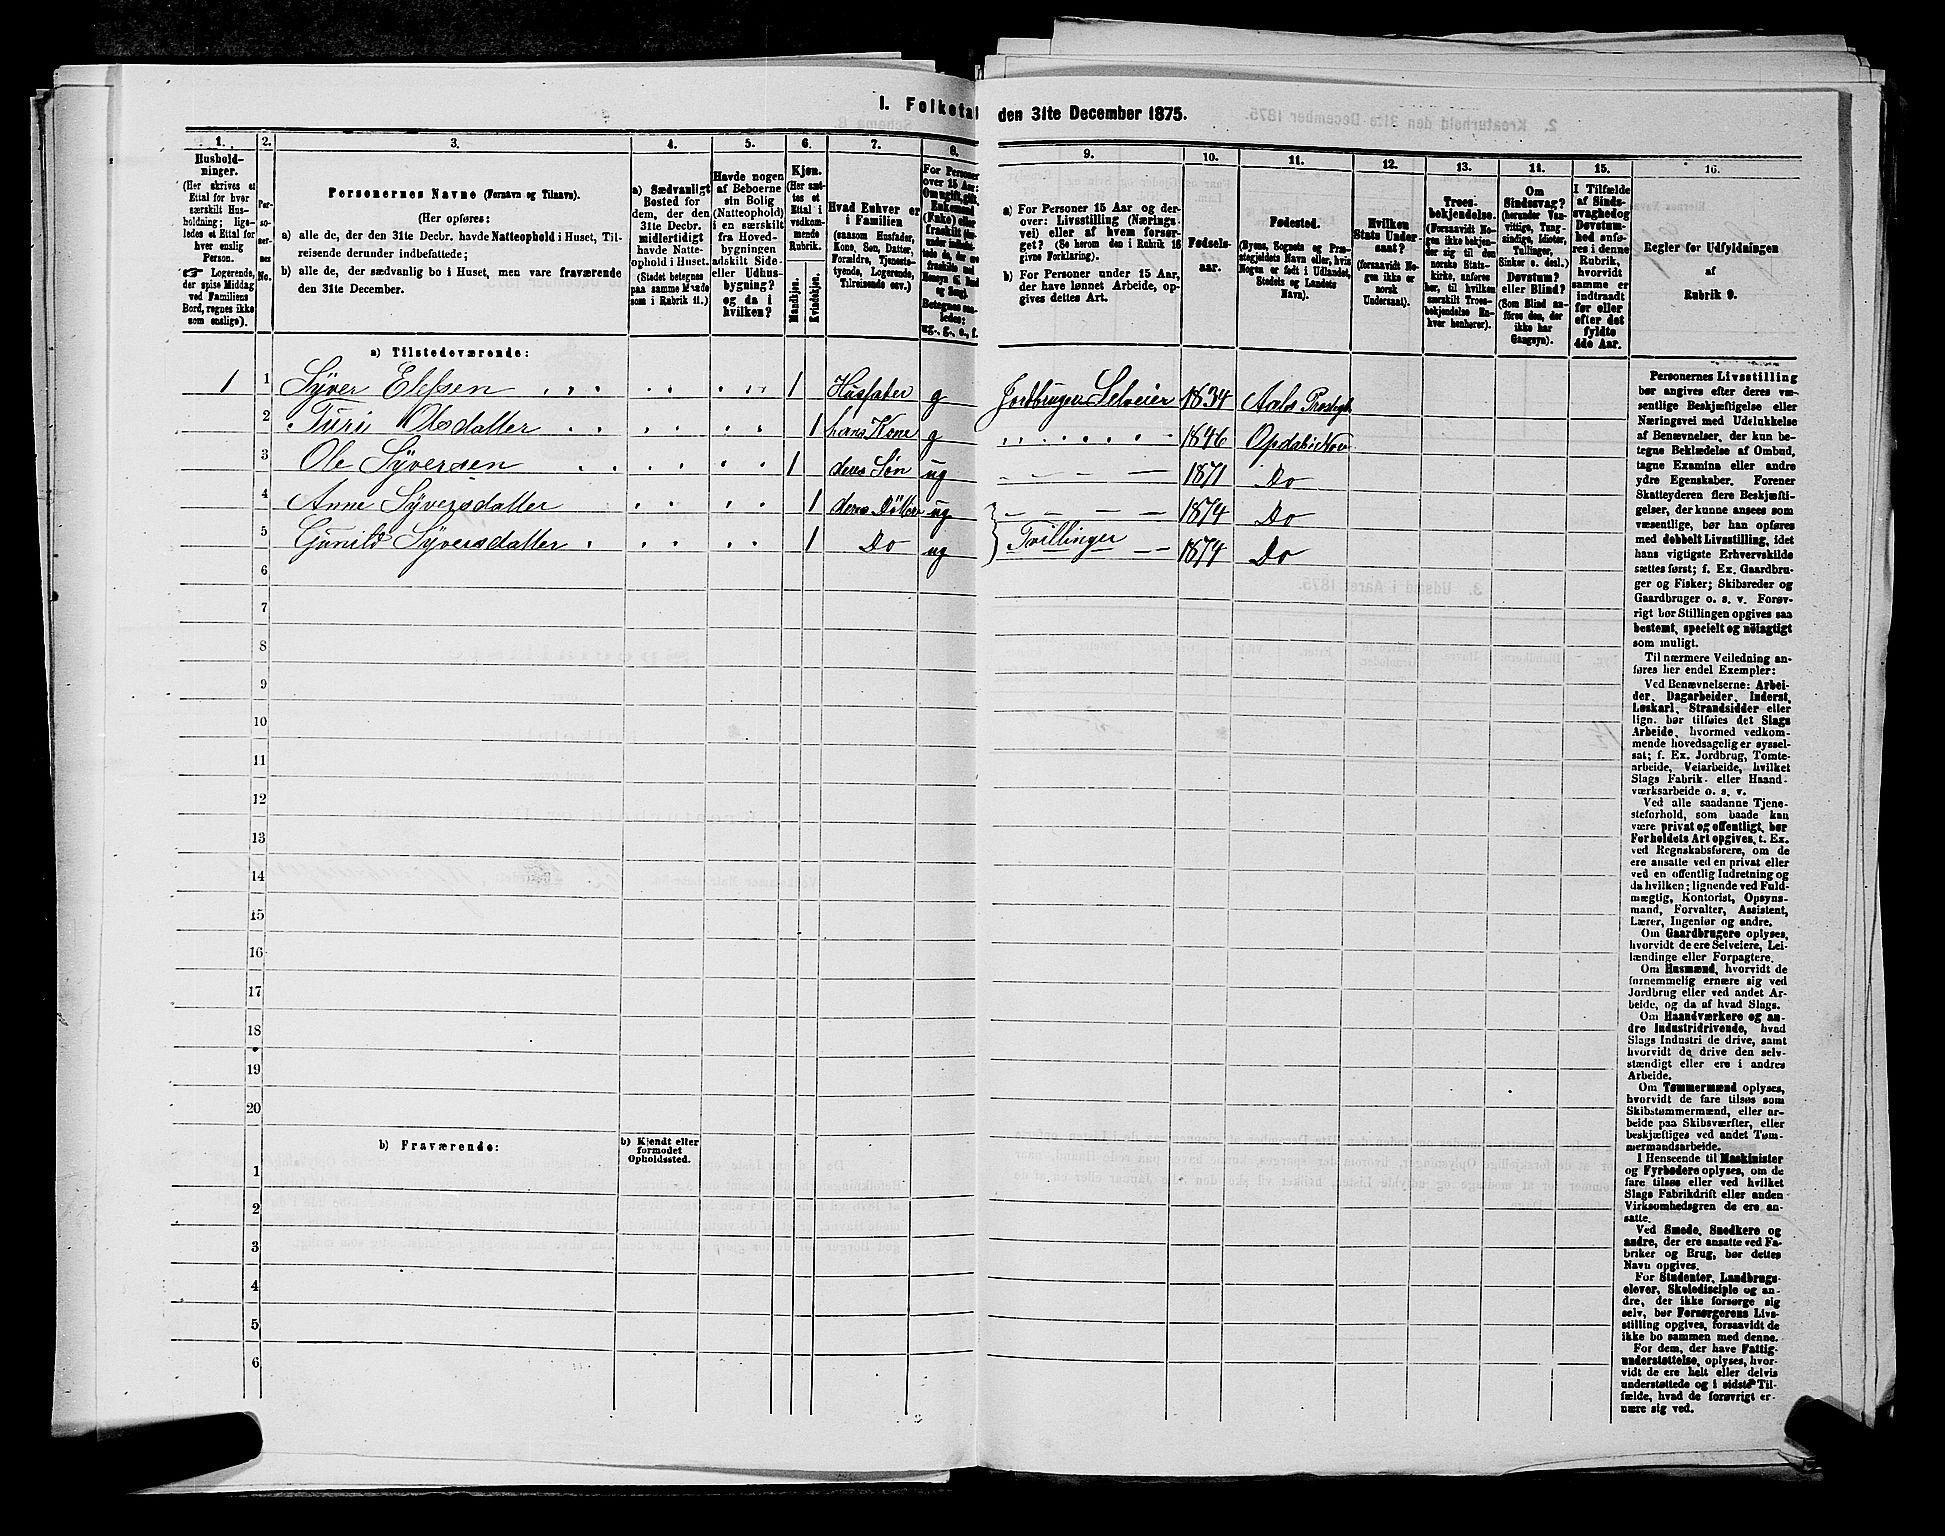 1. Folketal den 31te December 1875.
1.
Husholdninger.
(Her skrives et
Ettal for hver
særskilt Husholdning;
ligeledes et Ettal for
hver enslig
Person.
☞ Logerende,
der spise Middag
ved Familiens
Bord, regnes ikke
som enslige).
2.
Personernes
No.
3.
Personernes Navne (Fornavn og Tilnavn).
(Her opføres:
a) alle de, der den 31te Decbr. havde Natteophold i Huset, Tilreisende derunder indbefattede;
b) alle de, der sædvanlig bo i Huset, men vare fraværende
den 31te December.
4.
a) Sædvanligt
Bosted for
dem, der den
31te Decbr.
midlertidigt
havde Natteophold i Huset.
(Stedet betegnes
paa samme Maade
som i Rubrik 11.)
5.
Havde nogen
af Beboerne
sin Bolig
(Natteophold)
i en særskilt
fra Hovedbygningen
adskilt Side-
eller Udhusbygning?
og da i
hvilken?
6.
Kjøn.
(Her sættes et
Ettal i
vedkommende
Rubrik.
Mandkjøn.
Kvindekjøn.
7.
Hvad Enhver er
i Familien
(saasom Husfader,
Kone, Søn, Datter,
Forældre, Tjenestetyende, Logerende,
Tilreisende osv.)
8.
9.
a) For Personer 15 Aar og derover: Livsstilling (Næringsvei) eller af hvem forsørget? (Se herom den i Rubrik 16
givne Forklaring).
b) For Personer under 15 Aar,
der have lønnet Arbeide, opgives dettes Art.
10.
Fødselsaar.
11.
Fødested.
(Byens, Sognets og Præstegjeldets Navn eller, hvis
Nogen er født i Udlandet,
Stedets og Landets
Navn).
12.
Hvilken
Stats Undersaat?
(forsaavidt Nogen ikke er
norsk
Undersaat).
13.
Troesbekjendelse.
(Forsaavidt Nogen ikke bekjender sig til den
norske Statskirke, anføres
her, til hvilken
særskilt Troesbekjendelse Enhver henhører).
14.
Om
Sindssvag?
(herunder Vanvittige, Tungsindige, Idioter,
Tullinger,
Sinker o. desl.)
Døvstum?
eller Blind?
(Som Blind anføres den, der
ikke har
Gangsyn).
15.
I Tilfælde
af Sindssvaghed og
Døvstumhed anføres i denne
Rubrik,
hvorvidt
samme er
indtraadt
før eller
efter det
fyldte
4de Aar.
16.
Regler for Udfyldningen
af
Rubrik 9.
a) Tilstedeværende:
1 1 Syver Ellfsen 1 Husfader g Jordbruger Selveier 1834 Aals Prestegj.
2 Turi Olsdatter 1 hans Kone g 1846 Opdal i Num
3 Ole Syversen 1 deres Søn ug 1871 Do
4 Anne Syversdatter 1 deres Datter ug 1874 Do
5 Gunild Syversdatter 1 Do ug Tvillinger 1874 Do
6
7
8
9
10
11
12
13
14
15
16
17
18
19
20
b) Fraværende:
b) Kjendt eller
formodet
Opholdssted.
1
2
3
4
5
6
Personernes Livsstilling
bør angives efter deres væsentlige Beskjæftigelse eller
Næringsvei med Udelukkelse
af Benævnelser, der kun betegne Beklædelse af Ombud,
tagne Examina eller andre
ydre Egenskaber. Forener
Skatteyderen flere Beskjæftigelser, der kunne ansees som
væsentlige, bør han opføres
med dobbelt Livsstilling, idet
hans vigtigste Erhvervskilde
sættes først; f. Ex. Gaardbruger og Fisker; Skibsreder og
Gaardbruger o. s. v. Forøvrigt bør Stillingen opgives saa
bestemt, specielt og nøiagtigt
som muligt.
Til nærmere Veiledning anføres her endel Exempler:
Ved Benævnelserne: Arbeider, Dagarbeider, Inderst,
Løskarl, Strandsidder eller
lign. bør tilføies det Slags
Arbeide, hvormed vedkommende hovedsagelig er sysselsat; f. Ex. Jordbrug, Tomtearbeide, Veiarbeide, hvilket
Slags Fabrik- eller Haandværksarbeide o. s. v.
Ved alle saadanne Tjenesteforhold, som baade kan
være privat og offentligt, bør
Forholdets Art opgives, t. Ex.
ved Regnskabsførere, om de
ere ansatte ved en privat eller
ved en offentlig Indretning og
da hvilken; lignende ved Fuldmægtig, Kontorist, Opsynsmand, Forvalter, Assistent,
Lærer, Ingeniør og andre.
Om Gaardbrugere oplyses,
hvorvidt de ere Selveiere, Leilændinge eller Forpagtere.
Om Husmænd, hvorvidt de
fornemmelig ernære sig ved
Jordbrug eller ved andet Arbeide, og da af hvad Slags.
Om Haandværkere og andre Industridrivende, hvad
Slags Industri de drive, samt
hvorvidt de drive den selvstændigt eller ere i andres
Arbeide.
Om Tømmermænd oplyses,
hvorvidt de fare tilsøs som
Skibstømmermænd, eller arbeide paa Skibsværfter, eller
beskjæftiges ved andet Tømmermandsarbeide.
I Henseende til Maskinister
og Fyrbødere oplyses, om de
fare tilsøs eller ved hvilket
Slags Fabrikdrift eller anden
Virksomhed de ere ansatte.
Ved Smede, Snedkere og
andre, der ere ansatte ved Fabriker og Brug, bør dettes
Navn opgives.
For Studenter, Landbrugselever, Skoledisciple og andre, der ikke forsørge sig
selv, bør Forsørgerens Livsstilling opgives, forsaavidt de
ikke bo sammen med denne.
For dem, der have Fattigunderstøttelse, oplyses, hvorvidt de ere helt eller delvis
understøttede og i sidste Tilfælde, hvad de forøvrigt ernære sig ved.